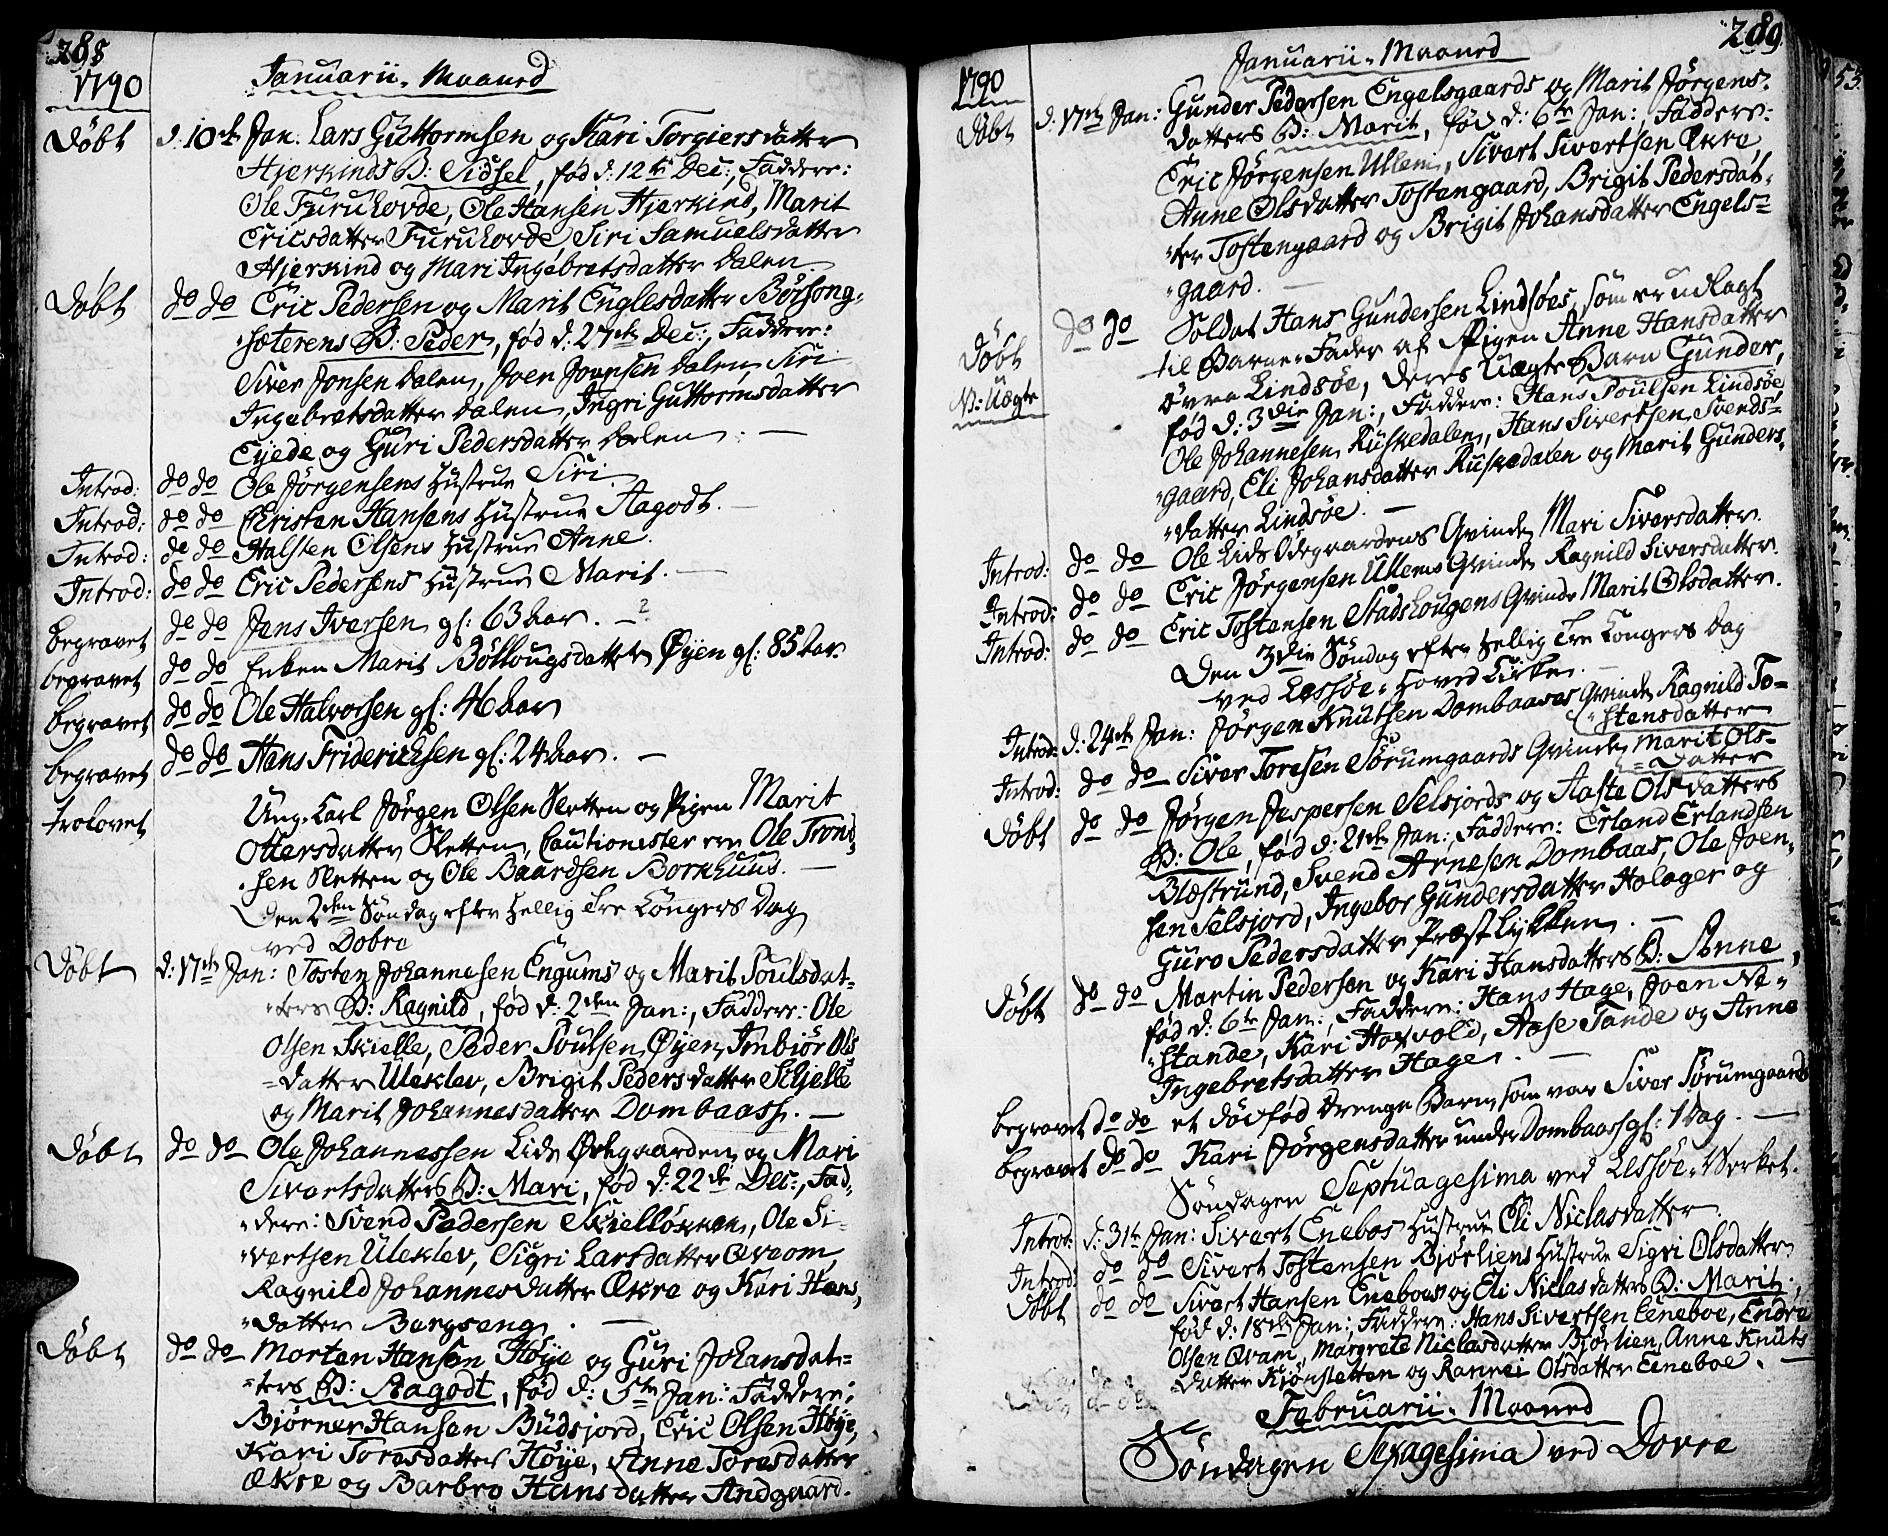 288
1790
Januarii Maaned
Døbt d: 10de Jan: Lars Guttormsen og Kari Torgiersdatter
Hjerkinds B: Sidsel, fød d: 12te Dec:, Faddere:
Ole Furuhovde, Ole Hansen Hjerkind, Marit
Ericsdatter Furuhovde, Siri Samuelsdatter
Hjerkind og Mari Ingebretsdatter Dalen
Døbt do do Eric Pedersen og Marit Englesdatter Børsong-
sæterens B: Peder, fød d: 27de Dec:, Faddere:
Siver Jonsen Dalen, Joen Joensen Dalen, Siri
Ingebretsdatter Dalen, Ingri Guttormsdatter
Eyede og Guri Pedersdatter Dalen. —
Introd: do do Ole Jørgensens Hustrue Siri
Introd: do do Christen Hansens Hustrue Aagodt. —
Introd: do do Halsten Olsens Hustrue Anne.
Introd: do do Eric Pedersens Hustrue Marit. —
begravet do do Jens Iversen gl: 63 Aar. —
begravet do do Enken Marit Bøllougsdatter Øyen gl: 85 Aar.
begravet do do Ole Halvorsen gl: 46 Aar
begravet do do Hans Friderichsen gl: 24 Aar. —
trolovet Ung-Karl Jørgen Olsen Sletten og Pigen Marit
Ottersdatter Sletten, Cautionister ere Ole Trond-
sen Sletten og Ole Baardsen Bornhuus. —
Den 2den Søndag efter Hellig Tre Kongers Dag
ved Dobre
Døbt d: 17de Jan: Tosten Johannesen Engums og Marit Poulsdat-
ters B: Ragnild, fød d: 2den Jan:, Faddere: Ole
Olsen Skielle, Peder Poulsen Øyen, Imbiør Ols
datter Uleklev, Brigit Pedersdatter Schjelle
og Marit Johannesdatter Dombaass. —
Døbt do do Ole Johannessen Lide Ødegaarden og Mari
Sivertsdatters B: Mari, fød d: 22de Dec:, Fad-
dere: Svend Pedersen Skielløkken, Ole Si-
vertsen Uleklev, Sigri Larsdatter Qveom,
Ragnild Johannesdatter Ækre og Kari Hans
datter Bergseng. —
Døbt do do Morten Hansen Høye og Guri Johansdat-
ters B: Aagodt, fød d: 5te Jan: Faddere:
Bjørner Hansen Budsjord, Eric Olsen Høye,
Kari Toresdatter Høye, Anne Toresdatter
Ækre og Barbro Hansdatter Andgaard.
289
1790
Januarii Maaned
Døbt d: 17de Jan: Gunder Pedersen Engelsgaards og Marit Jørgens-
datters B: Marit, fød d: 6te Jan:, Faddere:
Eric Jørgensen Ullem, Sivert Sivertsen Ækre
Anne Olsdatter Tostengaard, Brigit Pedersdat-
ter Tostengaard og Brigit Johansdatter Engels-
gaard. —
Døbt do do Soldat Hans Gundersen Lindsøes, som er udlagt
N: Uægte til Barne-Fader af Pigen Anne Hansdatter
øvre Lindsøe, deres Uægte Barn Gunder,
fød d: 3die Jan:, Faddere: Hans Poulsen Lindsøe
Ole Johannesen Ruskedalen, Hans Sivertsen Svends-
gaard, Eli Johansdatter Ruskedalen og Marit Gunders
datter Lindsøe. —
Introd: do do Ole Lide Ødegaardens Qvinde Mari Siversdatter.
Introd: do do Eric Jørgensen Ullems Qvinde Ragnild Siversdatter
Introd: do do Eric Tostensen Stadshougens Qvinde Marit Olsdatter.
Den 3die Søndag efter Hellig Tre Kongers Dag
ved Lessøe Hoved Kirke. —
Introd: d: 24de Jan: Jørgen Knutsen Dombaases Qvinde Ragnild To-
stensdatter
Introd: do do Siver Toresen Sørumgaards Qvinde Marit Ols-
datter
Døbt do do Jørgen Jespersen Selsjords og Aaste Olsdatters
B: Ole, fød d: 21de Jan:, Faddere: Erland Erlandsen
Blæstrund, Svend Arnesen Dombaas, Ole Joen-
sen Selsjord, Ingebor Gundersdatter Holager og
Guro Pedersdatter Præstlykken. —
Døbt do do Martin Pedersen og Kari Hansdatters B: Anne,
fød d: 6te Jan:, Faddere: Hans Hage, Joen Ne-
stande, Kari Hoxvold, Aase Tande og Anne
Ingebretsdatter Hage. —
begravet do do et dødfød drenge Barn, som var Siver Sørumgaards
begravet do do Kari Jørgensdatter under Dombaas gl: 1 Dag. —
Søndagen Septuagesima ved Lessøe-Verket.
Introd: d: 31te Jan: Sivert Eneboes Hustrue Eli Niclasdatter
Introd: do do Sivert Tostensen Bjørliens Hustrue Sigri Olsdatter
Døbt do do Sivert Hansen Eneboes og Eli Niclasdatters B: Marit,
fød d: 18de Jan:, Faddere: Hans Sivertsen Eeneboe, Endre
Olsen Qvam, Margrete Niclasdatter Bjørlien, Anne Knuts
datter Kjønstetten og Rannei Olsdatter Eeneboe. —
Februarii Maaned
Søndagen Sexagesima ved Dovre